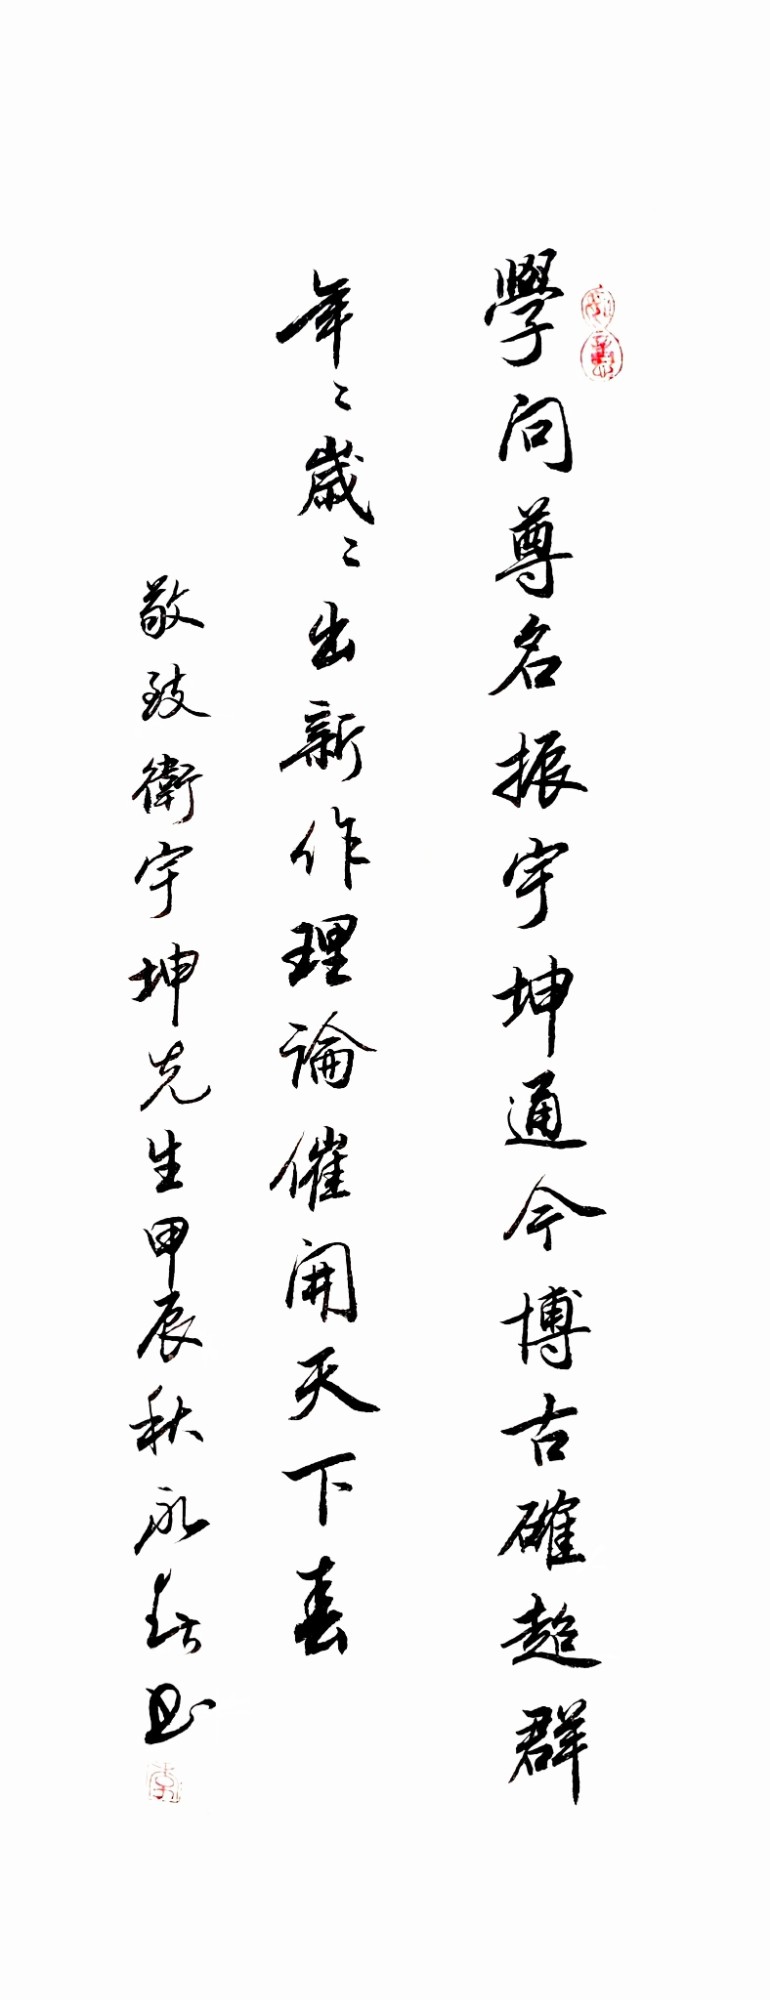 學问尊名振宇坤通今博古確超群
年〻歲〻出新作理論催開天下春
敬致衛宇坤先生甲辰秋永